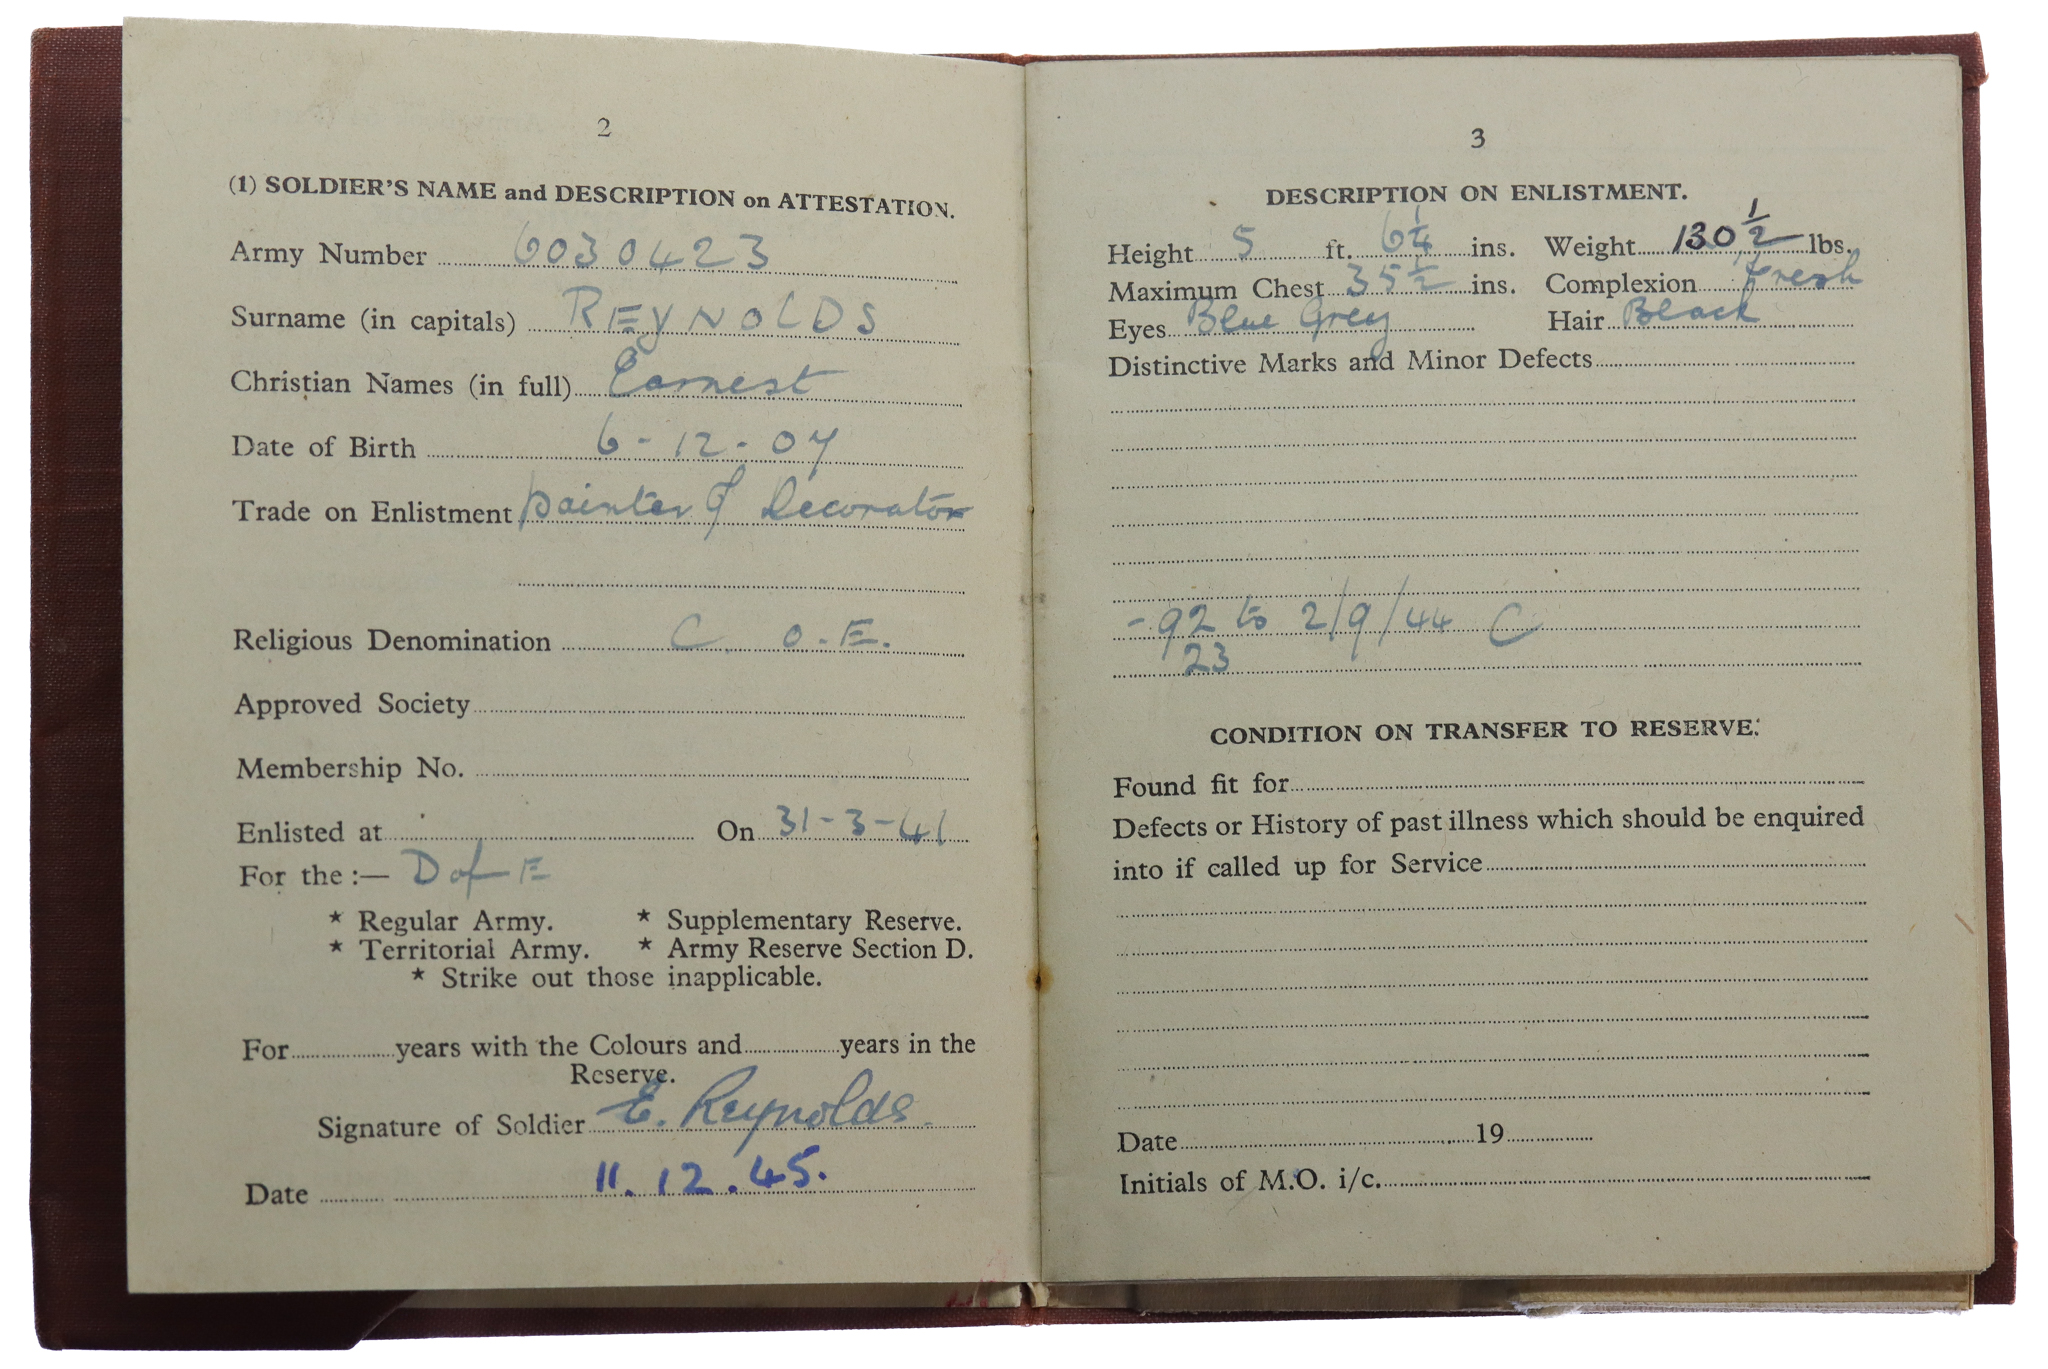 2
(1) SOLDIER'S NAME and DESCRIPTION on ATTESTATION.
Army Number 6030423
Surname (in capitals) REYNOLDS
Christian Names (in full) Earnest
Date of Birth 6-12-07
Trade on Enlistment Painter & Decorator
Religious Denomination C. O.E.
Approved Society
Membership No.
Enlisted at On 31-3-41
For the :— D of E
* Regular Army. * Supplementary Reserve.
* Territorial Army. * Army Reserve Section D.
* Strike out those inapplicable.
For years with the Colours and years in the
Reserve.
Signature of Soldier E. Reynolds.
Date 11.12.45.
3
DESCRIPTION ON ENLISTMENT.
Height 5 ft. 6 1/4 ins. Weight 130 1/2 lbs.
Maximum Chest 35 1/2 ins. Complexion fresh
Eyes Blue Grey Hair Black
Distinctive Marks and Minor Defects
-92 to 2/9/44 C
23
CONDITION ON TRANSFER TO RESERVE.
Found fit for
Defects or History of past illness which should be enquired
into if called up for Service
Date 19
Initials of M.O. i/c.